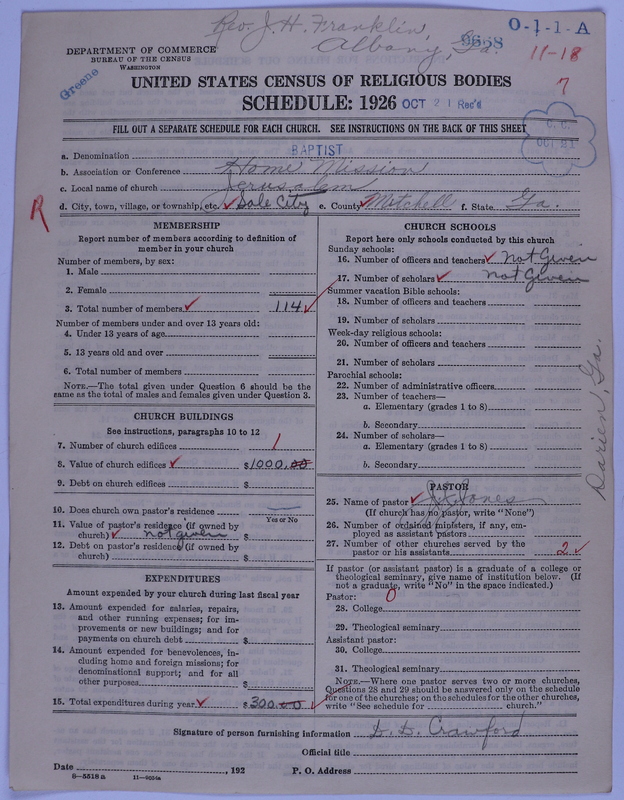 Rev. J. H. Franklin,
Albany, Ga.
9658
O-1-1-A
11-18
7
DEPARTMENT OF COMMERCE
BUREAU OF THE CENSUS
WASHINGTON
Greene
UNITED STATES CENSUS OF RELIGIOUS BODIES
SCHEDULE: 1926 OCT 21 Rec'd
FILL OUT A SEPARATE SCHEDULE FOR EACH CHURCH. SEE INSTRUCTIONS ON THE BACK OF THIS SHEET
C. C.
OCT 21
a. Denomination BAPTIST
b. Association or Conference Home Mission
c. Local name of church Jerusalem
d. City, town, village, or township, etc. Sale City e. County Mitchell f. State Ga.
R
MEMBERSHIP
Report number of members according to definition of
member in your church
Number of members, by sex:
1. Male
2. Female
3. Total number of members 114
Number of members under and over 13 years old:
4. Under 13 years of age
5. 13 years old and over
6. Total number of members
NOTE.—The total given under Question 6 should be the
same as the total of males and females given under Question 3.
CHURCH BUILDINGS
See instructions, paragraphs 10 to 12
7. Number of church edifices 1
8. Value of church edifices $1000.00
9. Debt on church edifices $
10. Does church own pastor's residence
Yes or No
11. Value of pastor's residence (if owned by
church) not given $
12. Debt on pastor's residence (if owned by
church) $
EXPENDITURES
Amount expended by your church during last fiscal year
13. Amount expended for salaries, repairs,
and other running expenses; for im-
provements or new buildings; and for
payments on church debt $
14. Amount expended for benevolences, in-
cluding home and foreign missions; for
denominational support; and for all
other purposes $
15. Total expenditures during year $300.00
CHURCH SCHOOLS
Report here only schools conducted by this church
Sunday schools:
16. Number of officers and teachers not Given
17. Number of scholars not Given
Summer vacation Bible schools:
18. Number of officers and teachers
19. Number of scholars
Week-day religious schools:
20. Number of officers and teachers
21. Number of scholars
Parochial schools:
22. Number of administrative officers
23. Number of teachers—
a. Elementary (grades 1 to 8)
b. Secondary
24. Number of scholars—
a. Elementary (grades 1 to 8)
b. Secondary
Darien, Ga.
PASTOR
25. Name of pastor Jones
(If church has no pastor, write "None")
26. Number of ordained ministers, if any, em-
ployed as assistant pastors
27. Number of other churches served by the
pastor or his assistants 2
If pastor (or assistant pastor) is a graduate of a college or
theological seminary, give name of institution below. (If
not a graduate, write "No" in the space indicated.)
Pastor: 0
28. College
29. Theological seminary
Assistant pastor:
30. College
31. Theological seminary
NOTE.—Where one pastor serves two or more churches,
Questions 28 and 29 should be answered only on the schedule
for one of the churches; on the schedules for the other churches,
write "See schedule for church."
Signature of person furnishing information D. D. Crawford
Official title
Date , 192 P. O. Address
8-5518a 11-9034a